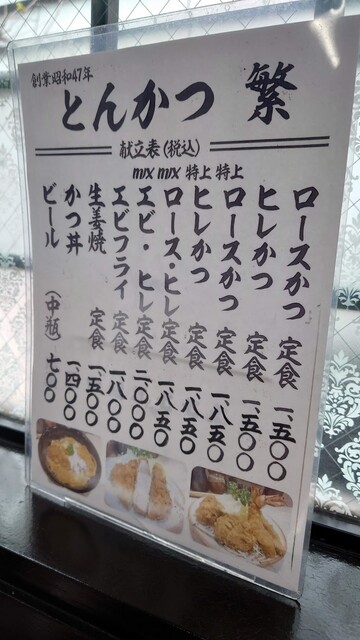 創業昭和47年
とんかつ 繁
献立表(税込)
mix mix 特上 特上
ロースかつ 定食 一、五〇〇
ヒレかつ 定食 一、五〇〇
ロースかつ 定食 一、八五〇
ヒレかつ 定食 一、八五〇
ロース・ヒレ 定食 一、八五〇
エビ・ヒレ 定食 二、〇〇〇
エビフライ 定食 一、八〇〇
生姜焼 定食 一、五〇〇
かつ丼 一、四〇〇
ビール (中瓶) 七〇〇